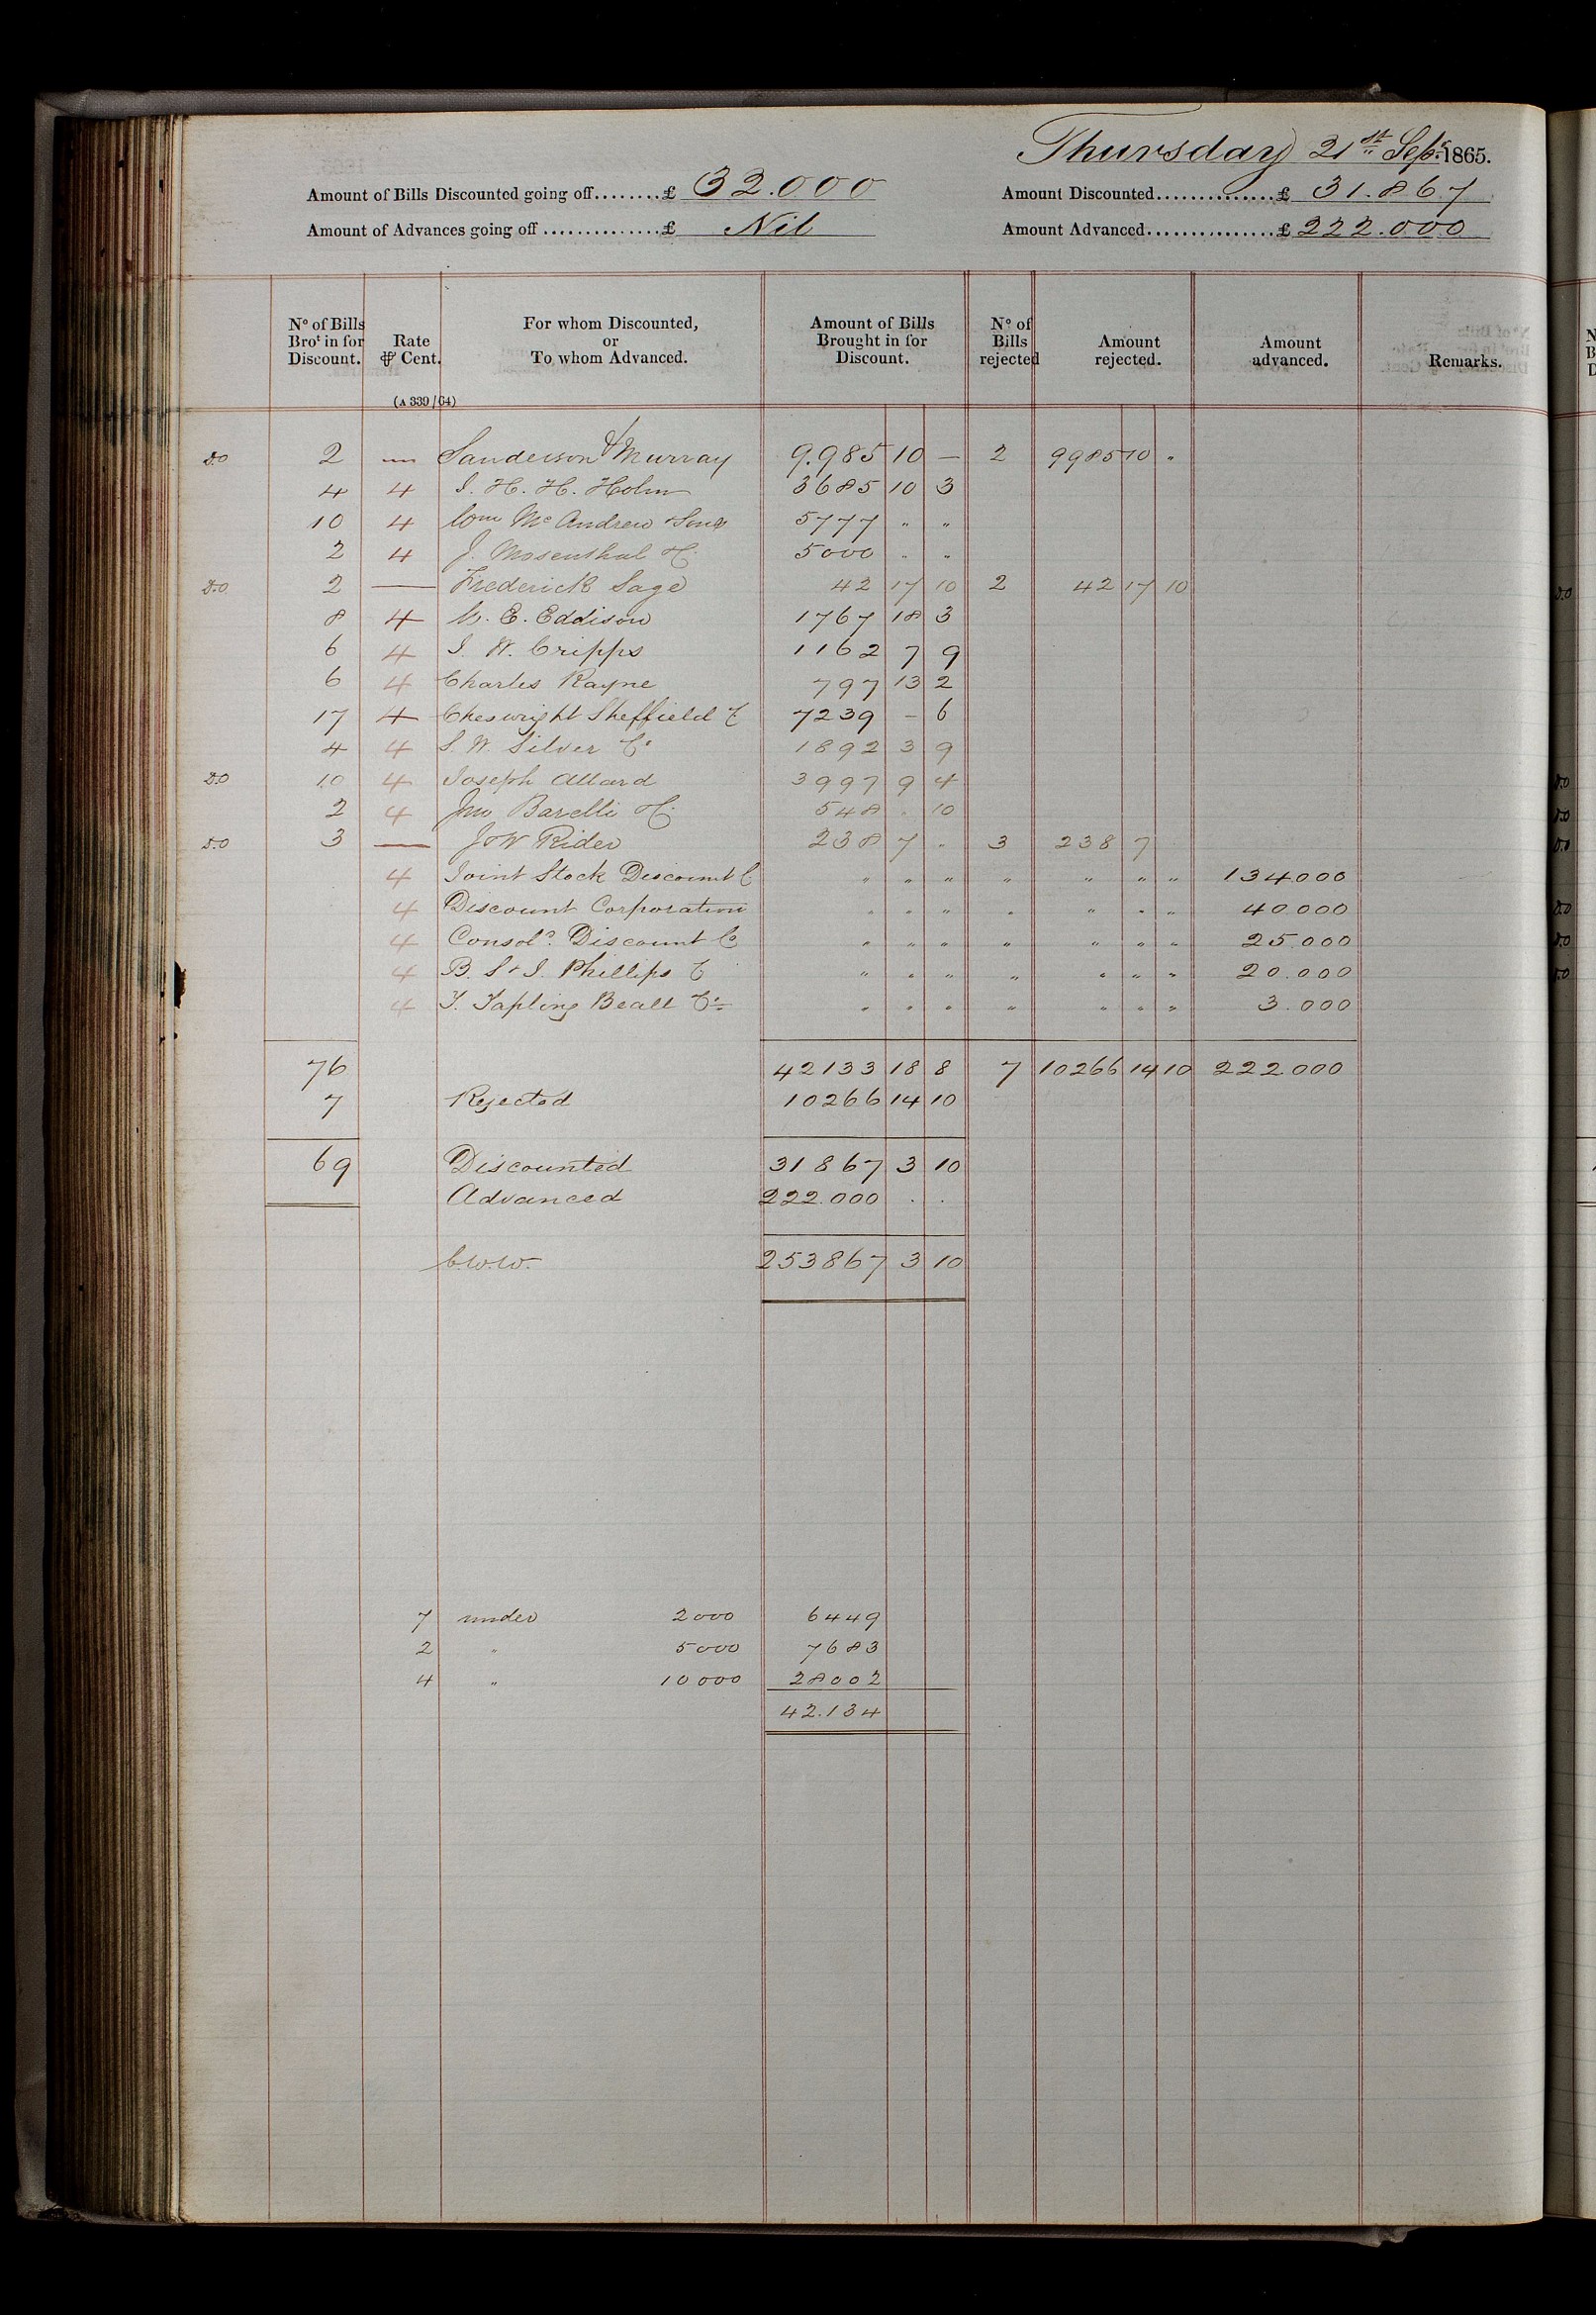 Thursday 21st Sepr. 1865.
Amount of Bills Discounted going off........£ 32.000 Amount Discounted...............£ 31.867
Amount of Advances going off...............£ Nil Amount Advanced................£ 222.000
No of Bills Brot in for Discount. Rate ⅌ Cent. For whom Discounted, or To whom Advanced. Amount of Bills Brought in for Discount. No of Bills rejected Amount rejected. Amount advanced. Remarks.
(A 339/64)
Do 2 — Sanderson & Murray 9.985 10 — 2 9985 10 "
4 4 J. H. H. Holm 3685 10 3
10 4 Wm McAndrew & Sons 5777 " "
2 4 J. Mosenthal & C. 5000 " "
Do 2 — Frederick Sage 42 17 10 2 42 17 10
8 4 E. Eddison 1767 18 3
6 4 J. W. Cripps 1162 7 9
6 4 Charles Rayne 797 13 2
17 4 Cheswright Sheffield C 7239 - 6
4 4 S. W. Silver Co 1892 3 9
Do 10 4 Joseph Allard 3997 9 4
2 4 Jno Barelli & C. 548 . 10
Do 3 — J & W Rider 238 7 " 3 238 7
4 Joint Stock Discount C " " " " " " " 134000
4 Discount Corporation " " " " " " " 40.000
4 Consold. Discount Co " " " " " " " 25.000
4 B. S & J. Phillips C " " " " " " " 20.000
4 T. Tapling Beall Co " " " " " " " 3.000
76 42133 18 8 7 10266 14 10 222.000
7 Rejected 10266 14 10
69 Discounted 31867 3 10
Advanced 222.000 . .
C.W.W. 253867 3 10
7 under 2000 6449
2 " 5000 7683
4 " 10000 28002
42.134